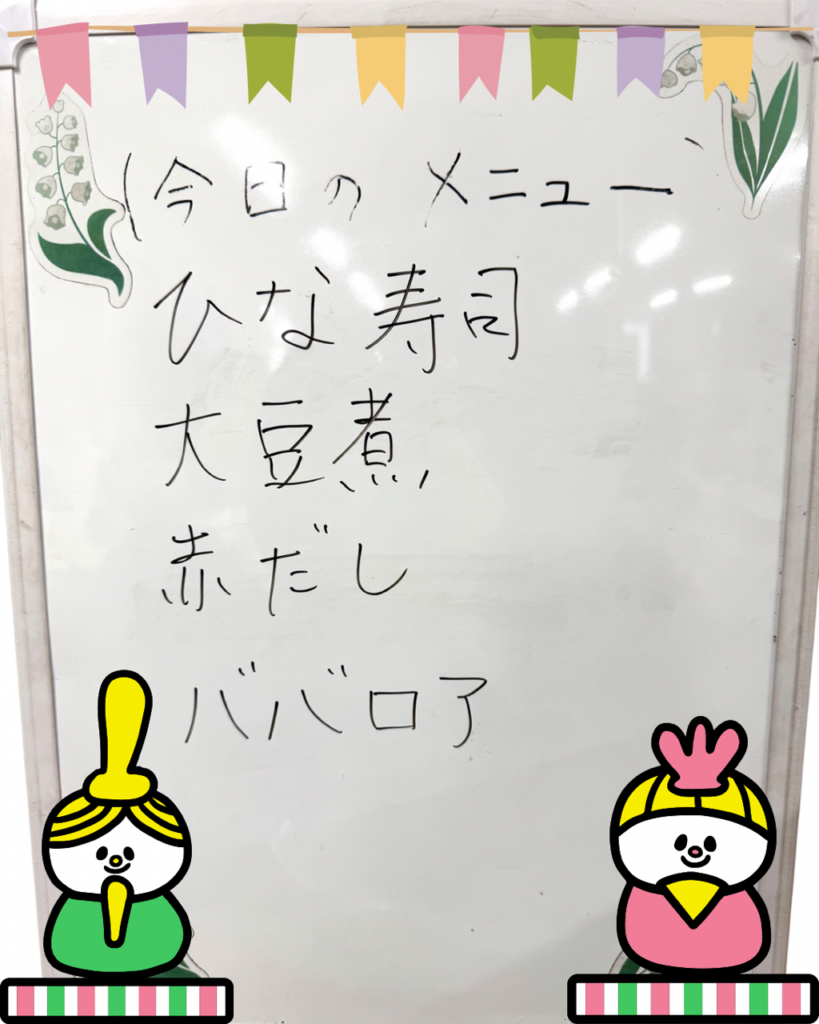 今日の メニュー
ひな寿司
大豆煮
赤だし
ババロア